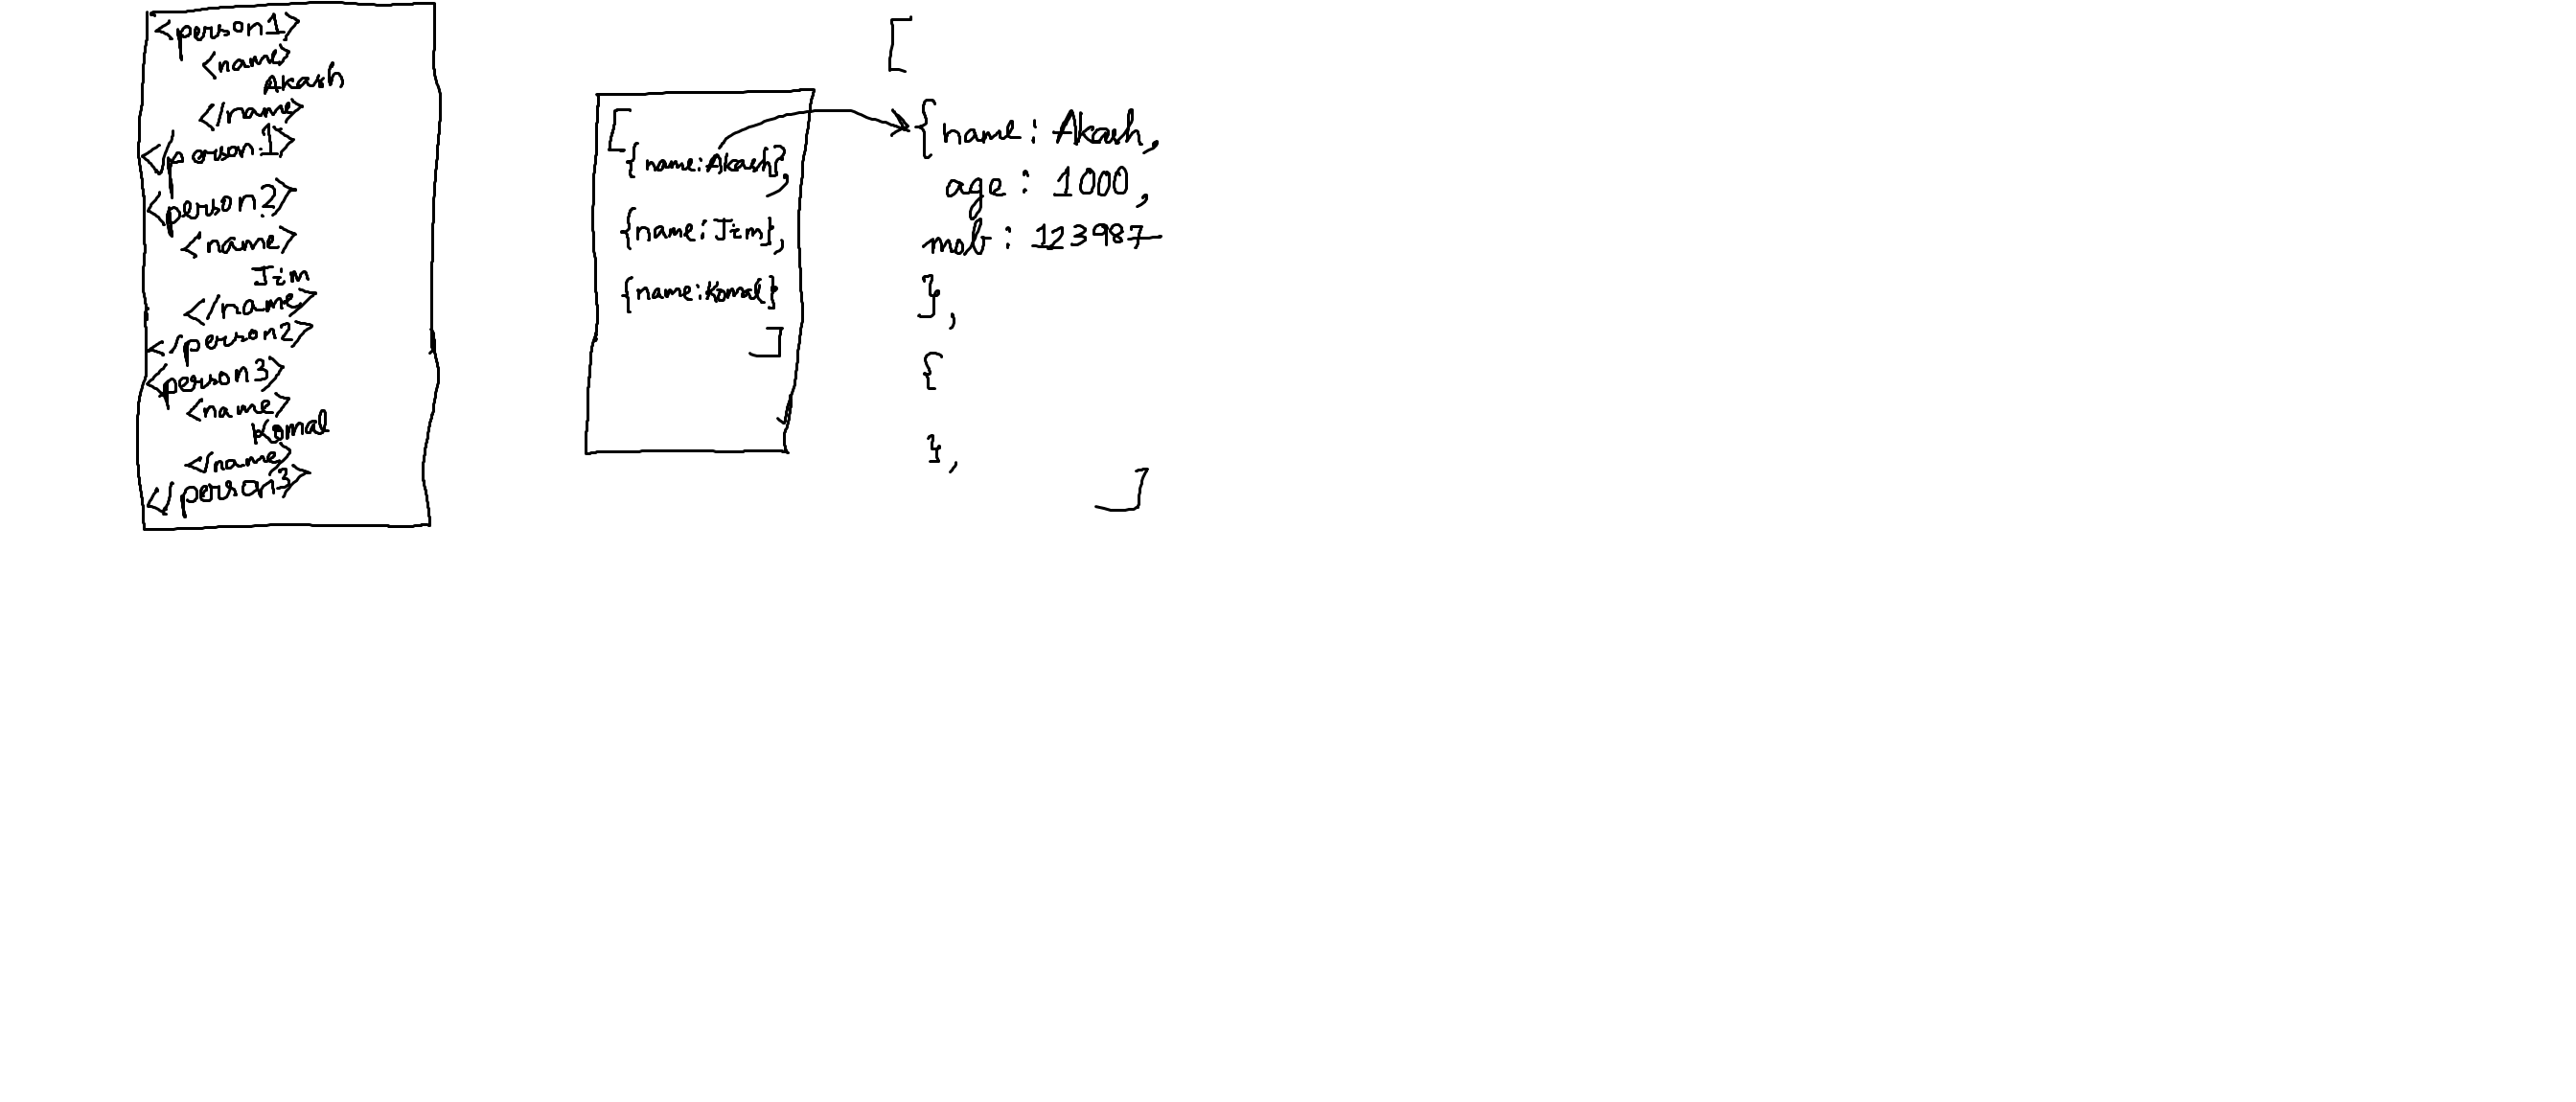 <person1>
<name>
Akash
</name>
</person1>
<person2>
<name>
Jim
</name>
</person2>
<person3>
<name>
Komal
</name>
</person3>
[
{name:Akash},
{name:Jim},
{name:Komal}
]
[
{name: Akash,
age: 1000,
mob: 123987
},
{
},
]